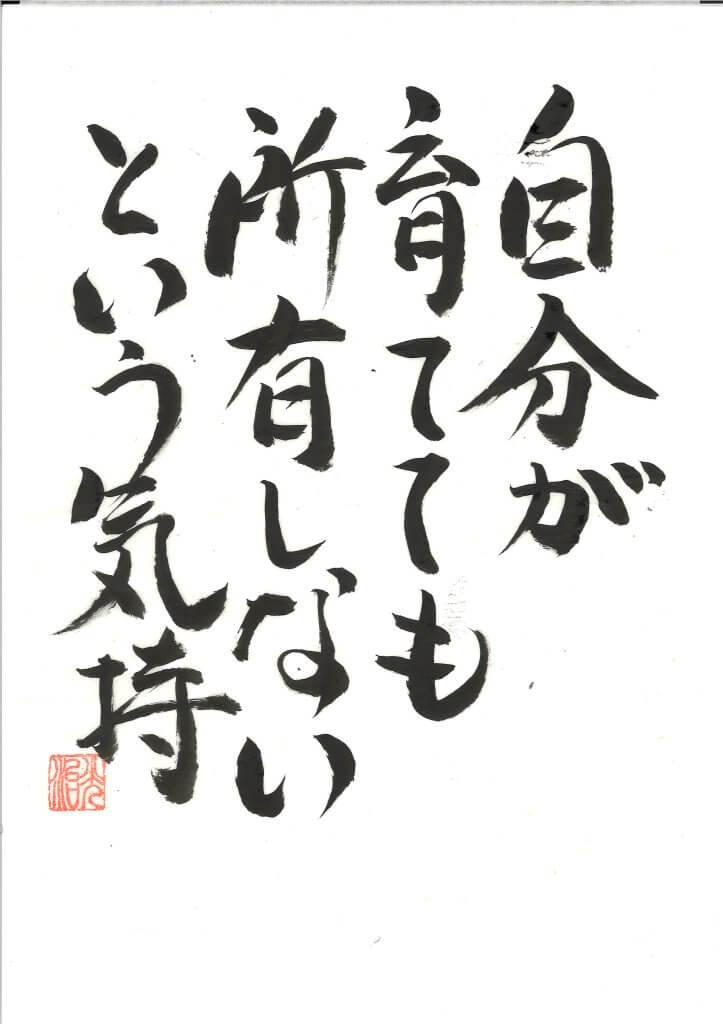 自分が
育てても
所有しない
という気持